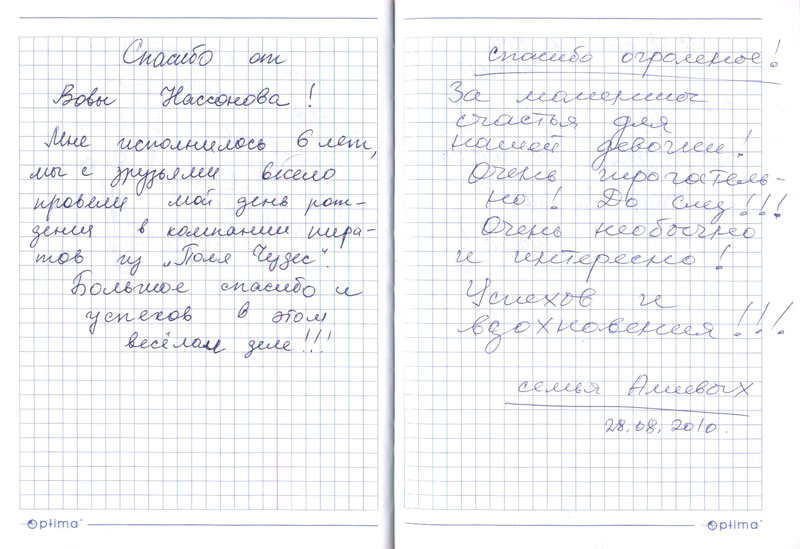 Спасибо от
Вовы Нассонова!
Мне исполнилось 6 лет,
мы с друзьями весело
провели мой день рож-
дения в компании пира-
тов из „Поля Чудес".
Большое спасибо и
успехов в этом
весёлом деле!!!
Optima
Спасибо огромное!
За моменты
счастья для
нашей девочки!
Очень трогатель-
но! До слёз!!!
Очень необычно
и интересно!
Успехов и
вдохновения!!!
семья
28.08.2010.
Optima